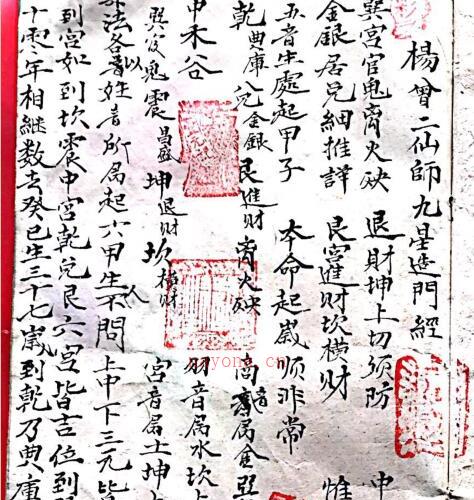 楊曾二仙師九星造門經
巽宮官鬼离火殃 退財坤上切須防 中
金銀居兌細推詳 艮宮進財坎横財 惟
五音生處起甲子 本命起歲順非常
乾典庫 兌金銀 艮進財 离火殃 商音属金巽
中禾谷
巽官鬼 震昌盛 坤退財 坎横財 羽音属水坎上
宮音属土坤上
算法各以音姓音所属起六甲生人不問上中下三元皆
到宮如到坎震中宮乾兌艮六宮皆吉位到
十零年相継数去癸巳生三十七歲到乾乃典庫
nayong.cn